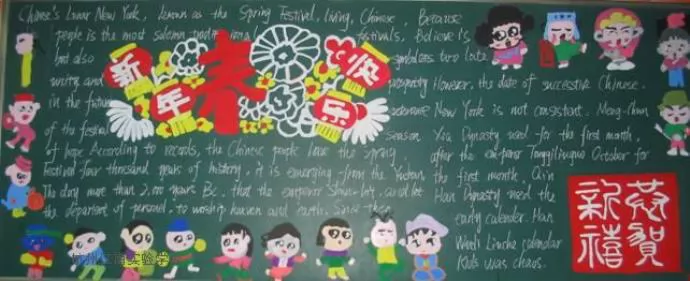 Chinese's Lunar New York, known as the Spring Festival, living, Chinese, Because
people is the most solemn traditional festivals. Believe is
but also symbolizes two late
unity and prosperity However, the date of successive Chinese
in the future New York is not consistent.
of the festival season Xia Dynasty used for the first month,
of hope According to records, the Chinese people have the spring, after the emperor October for
festival four thousand years of history, it is emerging from the the first month, Qin
The dong more than 2,000 years Bc, that the emperor Shun Han Dynasty used the
the department of personel, to worship heaven and earth. Since then early calender. Han
calendar
Kids was chaos.
新年春快乐
恭賀新禧